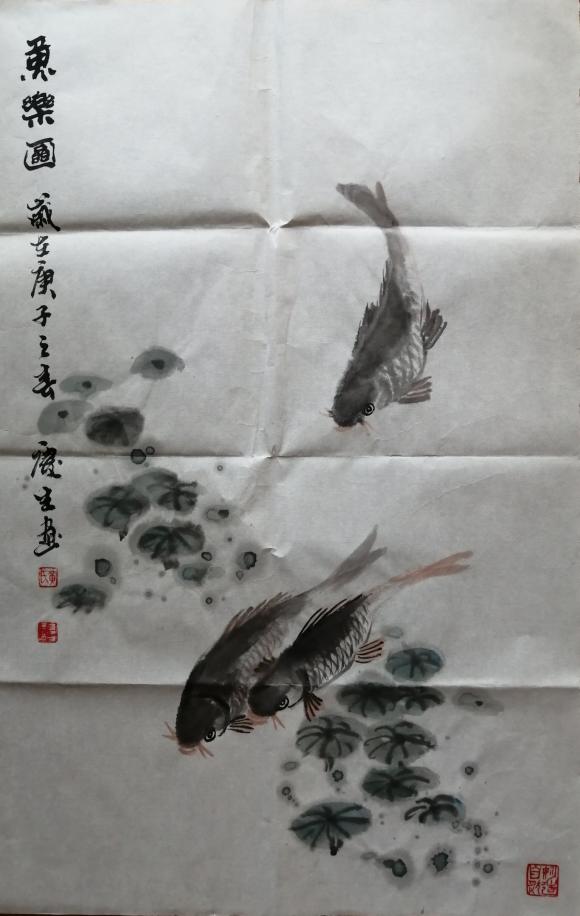 魚樂圖
歲在庚子之春 慶生画